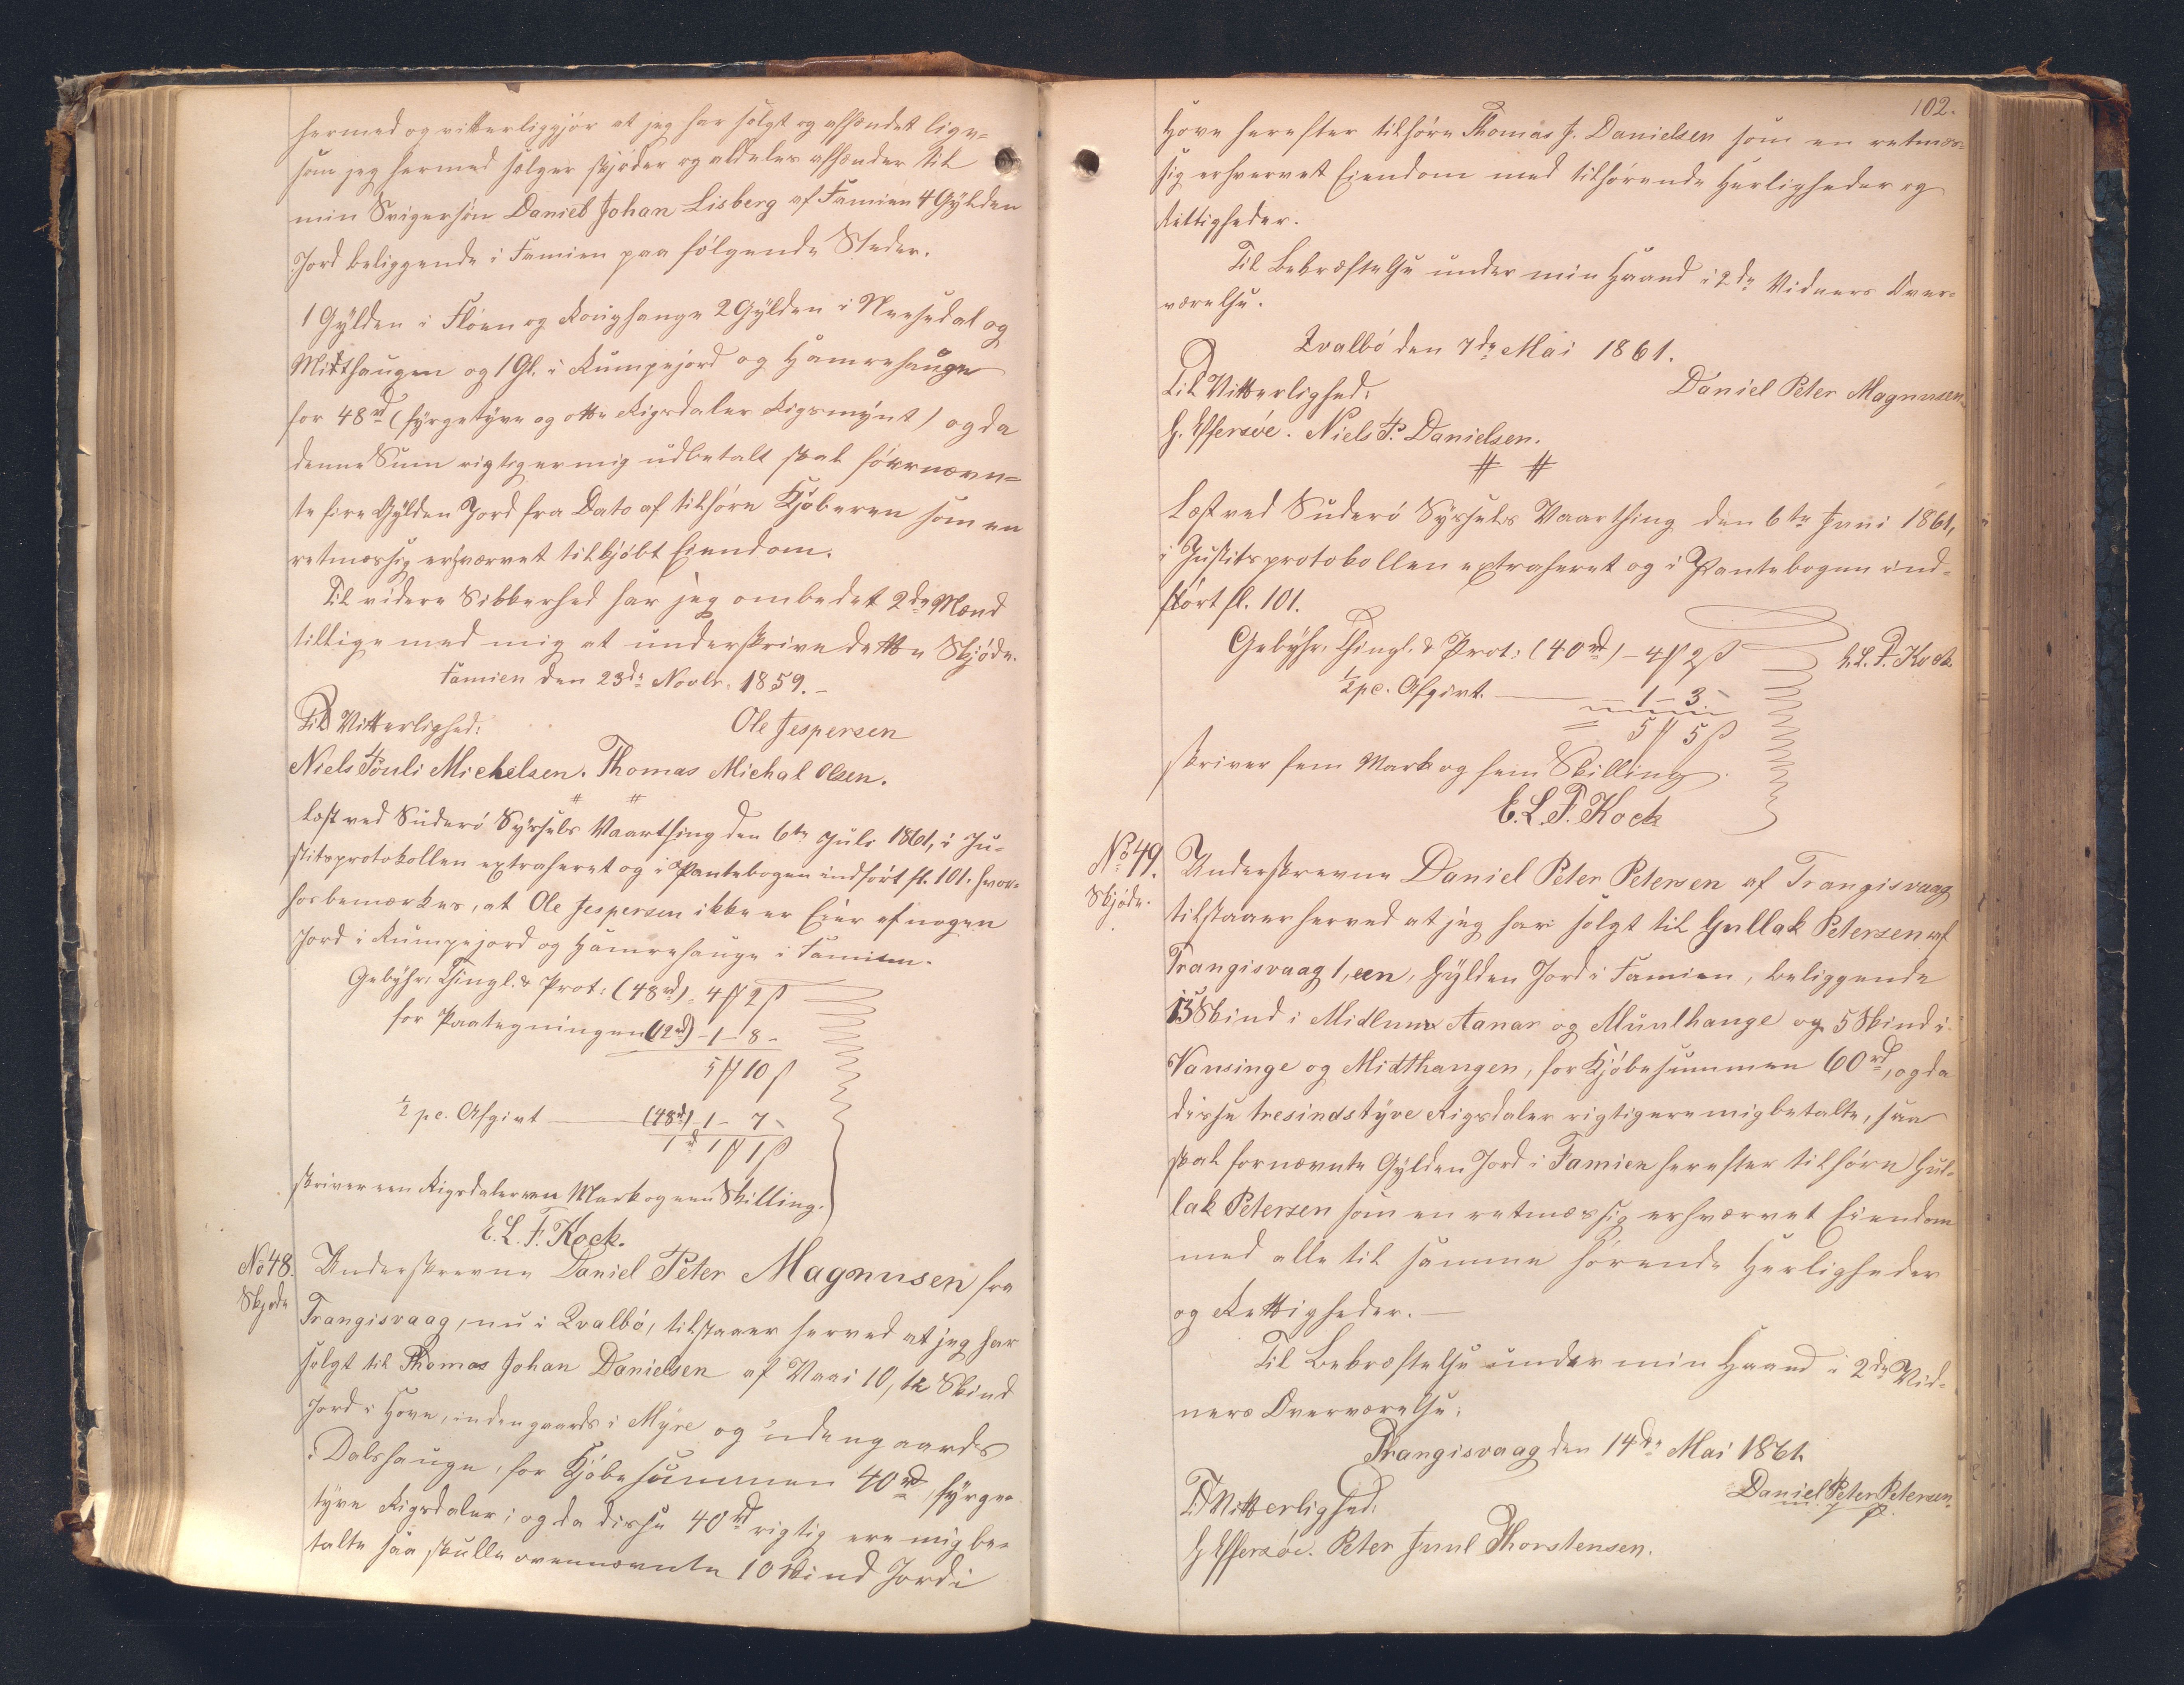 hermed og vitterliggjør at jeg har solgt og afhændet lige-
som jeg hermed sælger skjøder og aldeles afhænder til
min Svigersøn Daniel Johan Lisberg af Famien 4 Gylden
Jord beliggende i Famien paa følgende Steder.
1 Gylden i Fløen og 2 Gylden i og
Mitthaugen og 1 Gl. i Rumpejord og Hamrehauge
for 48 rd (fyrgetyve og otte Rigsdaler Rigsmynt) og da
denne Sum rigtig er mig udbetalt skal førnævn-
te fire Gylden Jord fra Dato af tilhøre Kjøberen som en
retmæssig erhværvet tilkjøbt Eiendom.
Til videre Sikkerhed har jeg ombedet 2de Mænd
tillige med mig at underskrive dette Skjøde.
Famien den 23de Novbr. 1859.-
Til Vitterlighed: Ole Jespersen
Niels Pouli Michelsen. Thomas Michal Olsen.
# #
Læst ved Suderø Syssels Vaarthing den 6te Juli 1861, i Ju-
stitsprotokollen extraheret og i Pantebogen indført fl. 101. hvor-
hos bemærkes, at Ole Jespersen ikke er Eier af nogen
Jord i Rumpejord og Hamrehauge i Famien.
Gebyhr: Thingl. & Prot: (48 rd) - 4 ꟙ 2 ß
for Paategningen (12 rd) - 1 - 8 -
5 ꟙ 10 ß
½ pc. Afgivt (48 rd) 1 - 7 -
1 rd 1 ꟙ 1 ß
skriver een Rigsdaler een Mark og een Skilling.
E. L. F. Kock.
No 48. Underskrevne Daniel Peter Magnusen fra
Skjøde Trangisvaag, nu i Qvalbø, tilstaaer herved at jeg har
solgt til Thomas Johan Danielsen af Vaai 10, ti Skind
Jord i Hove, indengaards i Myre og udengaards
i Dalshauge, for Kjøbesummen 40 rd, fyrge-
tyve Rigsdaler; og da disse 40 rd rigtig ere mig be-
talte saa skulle ovennævnte 10 Skind Jord i
102.
Hove herefter tilhøre Thomas J. Danielsen som en retmæs-
sig erhvervet Eiendom med tilhørende Herligheder og
Rettigheder.
Til Bekræftelse under min Haand i 2de Vidners Over-
værelse.
Qvalbø den 7de Mai 1861.
Til Vitterlighed: Daniel Peter Magnusen
G. Effersøe. Niels P. Danielsen.
# #
Læst ved Suderø Syssels Vaarthing den 6te Juni 1861,
i Justitsprotokollen extraheret og i Pantebogen ind-
ført fl. 101.
Gebyhr: Thingl. & Prot: (40 rd) - 4 ꟙ 2 ß E. L. F. Kock
½ pc. Afgivt. 1 - 3 -
5 ꟙ 5 ß
skriver fem Mark og fem Skilling.
E. L. F. Kock
No 49. Underskrevne Daniel Peter Petersen af Trangisvaag
Skjøde. tilstaaer herved at jeg har solgt til Gullak Petersen af
Trangisvaag 1, een, Gylden Jord i Famien, beliggende
15 Skind i Aanar og og 5 Skind i
Vansinge og Midthaugen, for Kjøbesummen 60 rd, og da
disse tresindstyve Rigsdaler rigtig ere mig betalte, saa
skal fornævnte Gylden Jord i Famien herefter tilhøre Gul-
lak Petersen som en retmæssig erhværvet Eiendom
med alle til samme hørende Herligheder
og Rettigheder. —
Til Bekræftelse under min Haand i 2de Vid-
ners Overværelse.
Trangisvaag den 14de Mai 1861.
Til Vitterlighed: Daniel Peter Petersen
G Effersøe. Peter Juul Thorstensen.